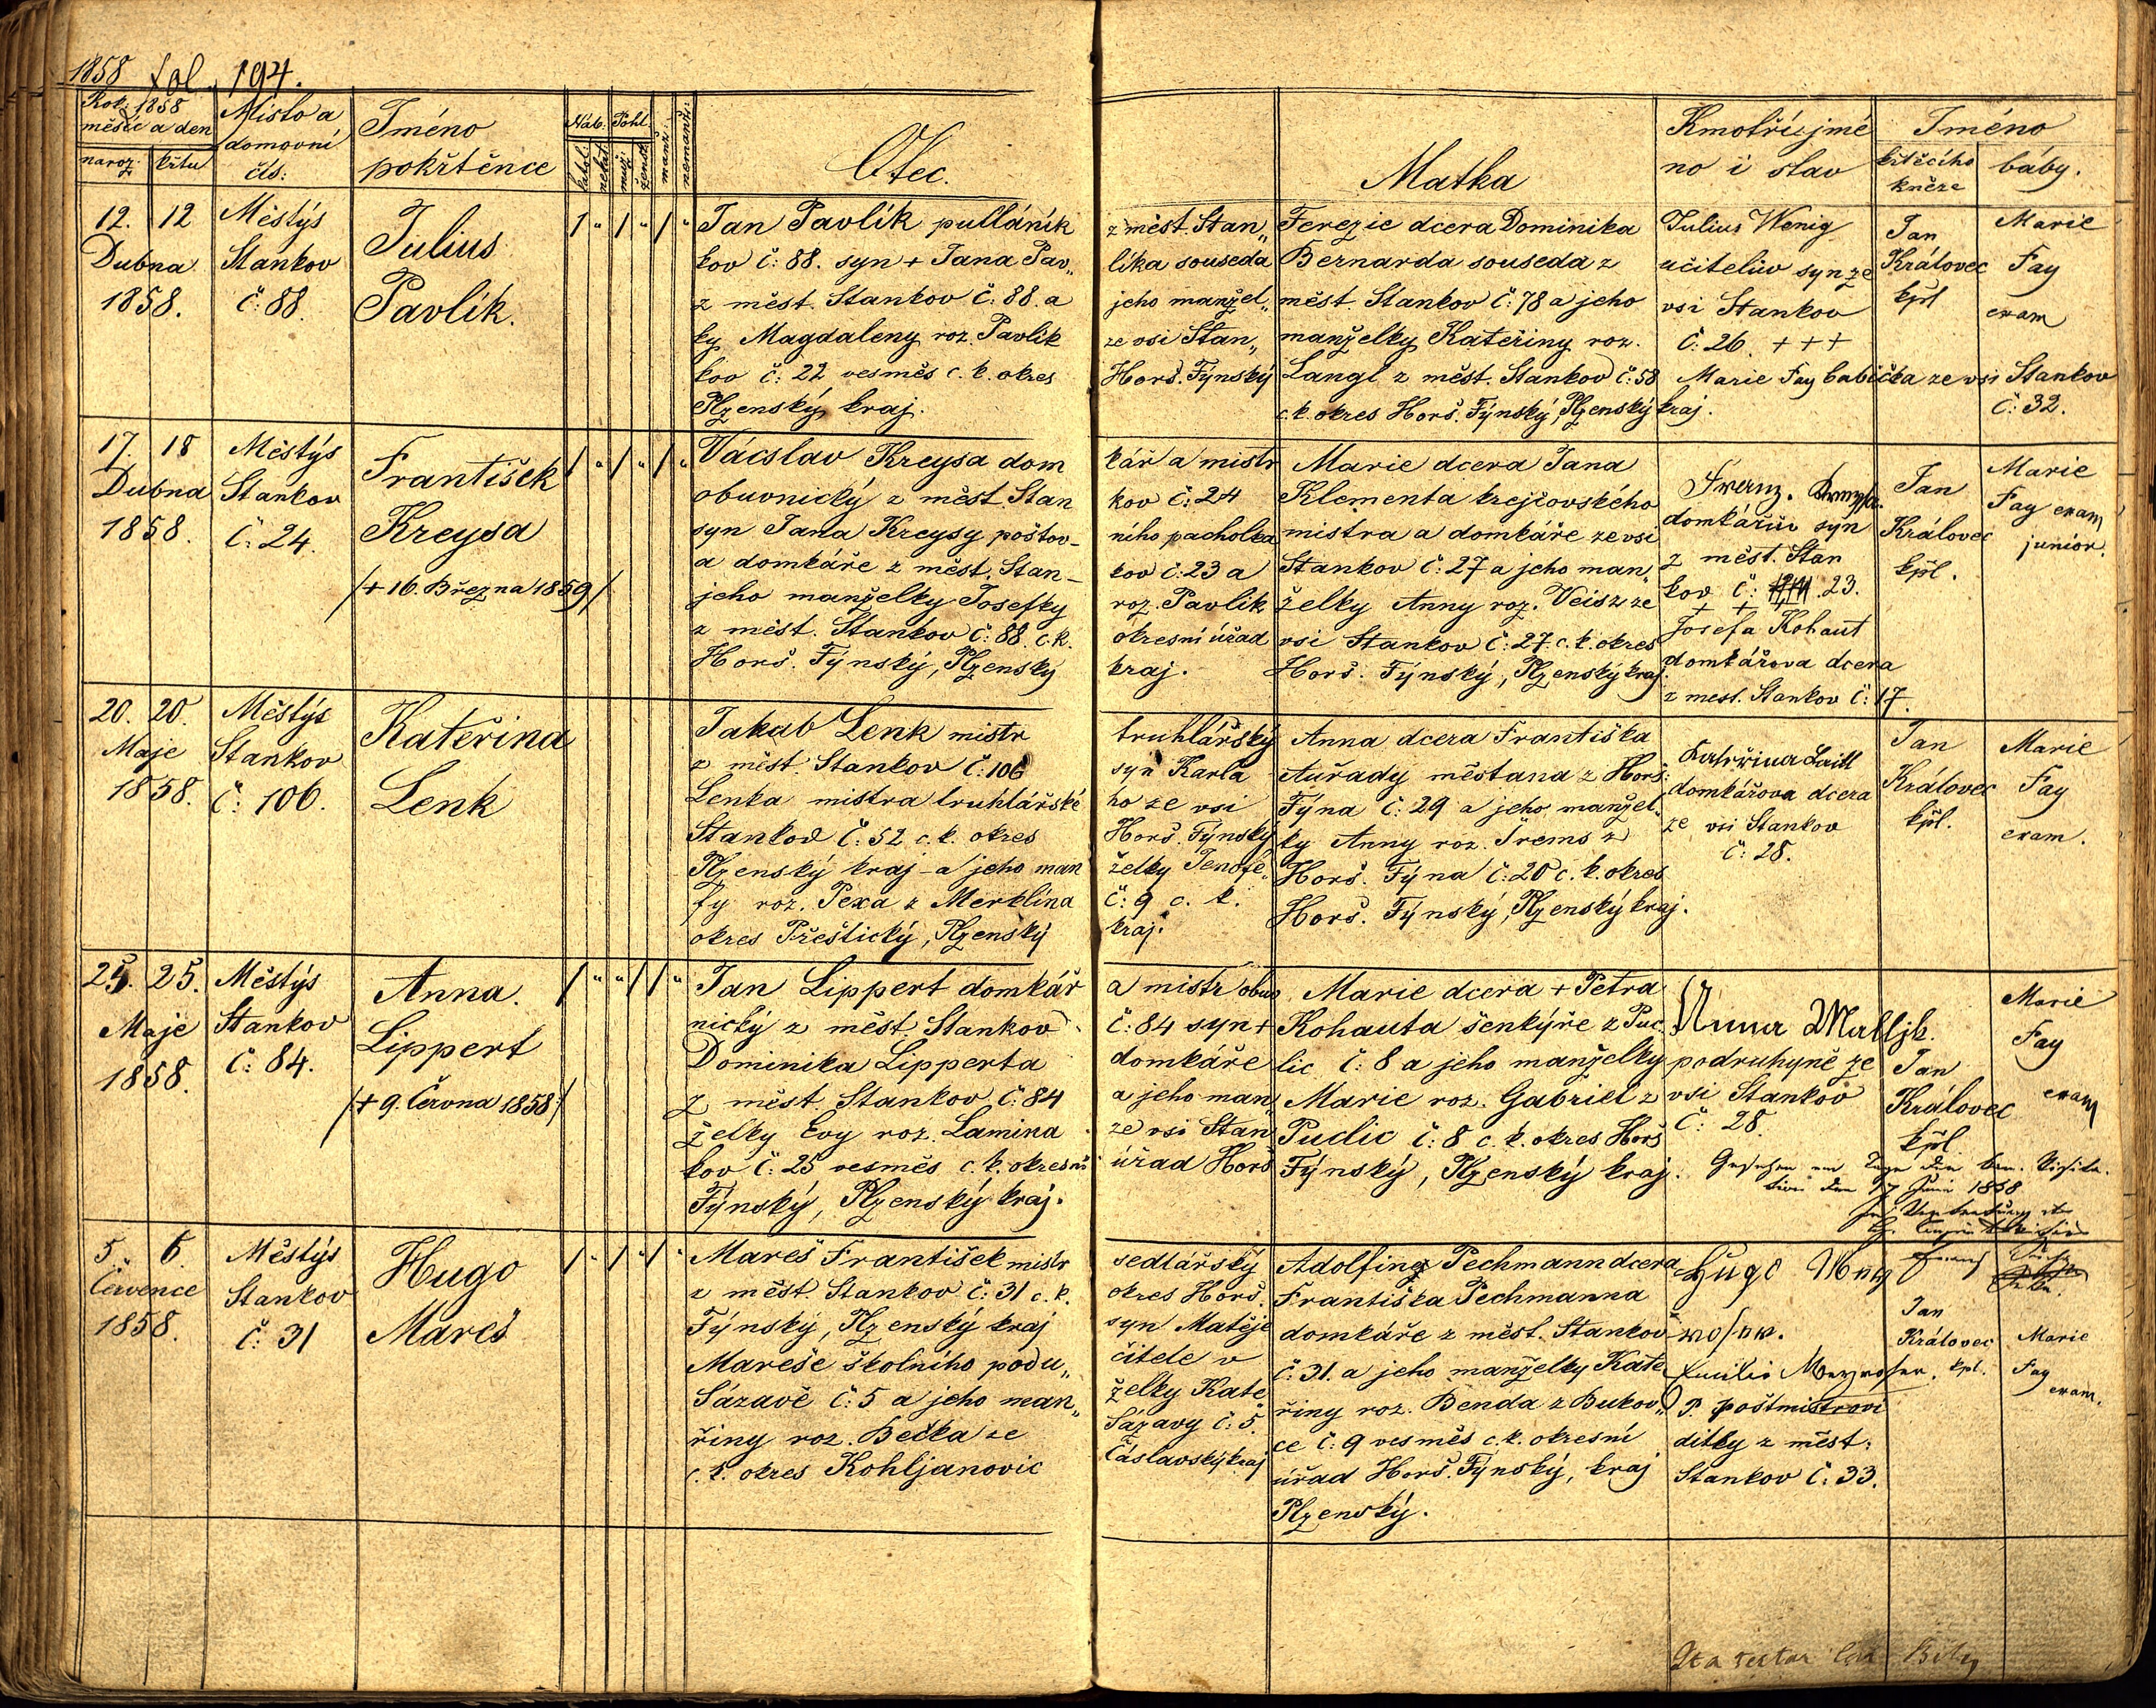 1858 fol. 194.
Rok: 1858
měsíc a den
naroz. křtu
Místo a
domovní
čís:
Jméno
pokřtěnce
Náb. Pohl.
katol. nekat. muž. žensk. manž: nemanž:
Otec.
Matka
Kmotří, jmé
no i stav
Jméno
křtěcího
kněze
báby.
12. 12
Dubna
1858.
Městýs
Stankov
č: 88.
Julius
Pavlík.
1 " 1 " 1 "
Jan Pavlík pulláník z měst. Stan„
kov č: 88. syn + Jana Pav„ líka souseda
z měst. Stankov č: 88. a jeho manžel„
ky Magdaleny roz. Pavlik ze vsi Stan„
kov č: 22 vesměs c. k. okres Horš. Týnský
Plzenský kraj.
Terezie dcera Dominika
Bernarda souseda z
měst. Stankov č: 78 a jeho
manželky Kateřiny roz.
Langl z měst. Stankov č: 58
c. k. okres Horš. Týnský, Plzenský kraj.
Julius Wenig
učitelův syn ze
vsi Stankov
č: 26. +++
Marie Fay babička ze vsi Stankov
č: 32.
Jan
Královec
kpl
Marie
Fay
exam
17. 18
Dubna
1858.
Městýs
Stankov
č: 24.
František
Kreysa
/+ 16. Března 1859/
1 " 1 " 1 "
Vácslav Kreysa dom kář a mistr
obuvnický z měst. Stan kov č: 24
syn Jana Kreysy poštov- ního pacholka
a domkáře z měst. Stan- kov č: 23 a
jeho manželky Josefky roz. Pavlik
z měst. Stankov č: 88. c. k. okresní úřad
Horš. Týnský, Plzenský kraj.
Marie dcera Jana
Klementa krejčovského
mistra a domkáře ze vsi
Stankov č: 27 a jeho man„
želky Anny roz. Veisz ze
vsi Stankov č: 27. c. k. okres
Horš. Týnský, Plzenský kraj.
Franz.
domkářův syn
z měst. Stan
kov č: 23.
+ +
Josefa Kohaut
domkářova dcera
z mest. Stankov č: 17.
Jan
Královec
kpl.
Marie
Fay exam
junior.
20. 20.
Maje
1858.
Městýs
Stankov
č: 106.
Kateřina
Lenk
Jakab Lenk mistr truhlářský
z měst. Stankov č: 106 syn Karla
Lenka mistra truhlářské ho ze vsi
Stankov č: 52 c. k. okres Horš. Týnský
Plzenský kraj - a jeho man želky Jenofe„
fy roz. Pexa z Merklína č: 9 c. k.
okres Přeštický, Plzenský kraj.
Anna dcera Františka
Auřady měštana z Horš:
Týna č: 29 a jeho manžel„
ky Anny roz. Šrems z
Horš. Týna č: 20 c. k. okres
Horš. Týnský, Plzenský kraj.
Kateřina
domkářova dcera
ze vsi Stankov
č: 28.
Jan
Královec
kpl.
Marie
Fay
exam.
25. 25.
Maje
1858.
Městýs
Stankov
č: 84.
Anna.
Lippert
/+ 9. Června 1858/
1 " " 1 1 "
Jan Lippert domkář a mistr obuv
nický z měst. Stankov č: 84 syn +
Dominika Lipperta domkáře
z měst. Stankov č: 84 a jeho man„
želky Evy roz. Lamina ze vsi Stan
kov č: 25 vesměs c. k. okresní úřad Horš
Týnský, Plzenský kraj.
Marie dcera + Petra
Kohauta šenkýře z Puc.
lic č: 8 a jeho manželky
Marie roz. Gabriel z
Puclic č: 8 c. k. okres Horš
Týnský, Plzenský kraj.
Anna
podruhyně ze
vsi Stankov
č: 28.
Jan
Královec
kpl.
Marie
Fay
exam
Gesehen am Tage der
den 17 Juni 1858
5. 6.
Července
1858.
Městýs
Stankov
č: 31
Hugo
Mareš
1 " 1 " 1 "
Mareš František mistr sedlářský
z měst. Stankov č: 31 c. k. okres Horš.
Týnský, Plzenský kraj syn Matěje
Mareše školního podu„ čitele v
Sázavě č: 5 a jeho man„ želky Kate
řiny roz. Bečka ze Sázavy č: 5.
c. k. okres Kohljanovic Čáslavský kraj
Adolfina Pechmann dcera
Františka Pechmanna
domkáře z měst. Stankov
č: 31. a jeho manželky Kate
řiny roz. Benda z Bukov„
ce č: 9 vesměs c. k. okresní
úřad Horš. Týnský, kraj
Plzenský.
Hugo
Emilie
P. poštmistrovi
dítky z měst:
Stankov č: 33.
Jan
Královec
kpl.
Marie
Fay
exam.
Ita testor